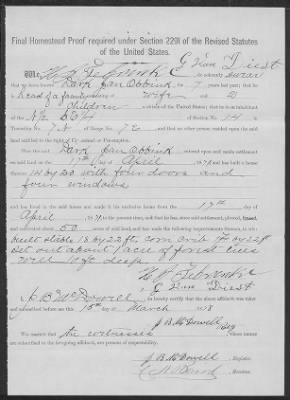 Final Homestead Proof required under Section 2291 of the Revised Statutes
of the United States.
We, H. J. G Van Diest
do solemnly swear
that we have known Dark Obbink for 7 years last past; that he
is head of a family consisting of wife and 2
children a citizen of the United States; that he is an inhabitant
of the N½ SE¼ of Section No. 14 in
Township 7 N of Range 7 E, and that no other person resided upon the said
land entitled to the right of Homestead or Pre-emption.
That the said Dark Obbink entered upon and made settlement
on said land on the 17th day of April, and built a house thereon
14 by 20 with four doors and
four windows
and has lived in the said house and made it his exclusive home from the 17th day of
April to the present time, and that he has, since said settlement, plowed,
and cultivated about 50 acres of said land, and has made the following improvements thereon, to wit:
built stable 18 by 22 ft, corn crib 14 by 22 ft
set out about 1 acre of forest trees
well 10 ft deep
G Van Diest
I, J B McDowell, do hereby certify that the above affidavit was taken
and subscribed before me this 15th day of March
J B McDowell
We certify that the witnesses whose names
are subscribed to the foregoing affidavit, are persons of respectability.
J B McDowell Register
Receiver